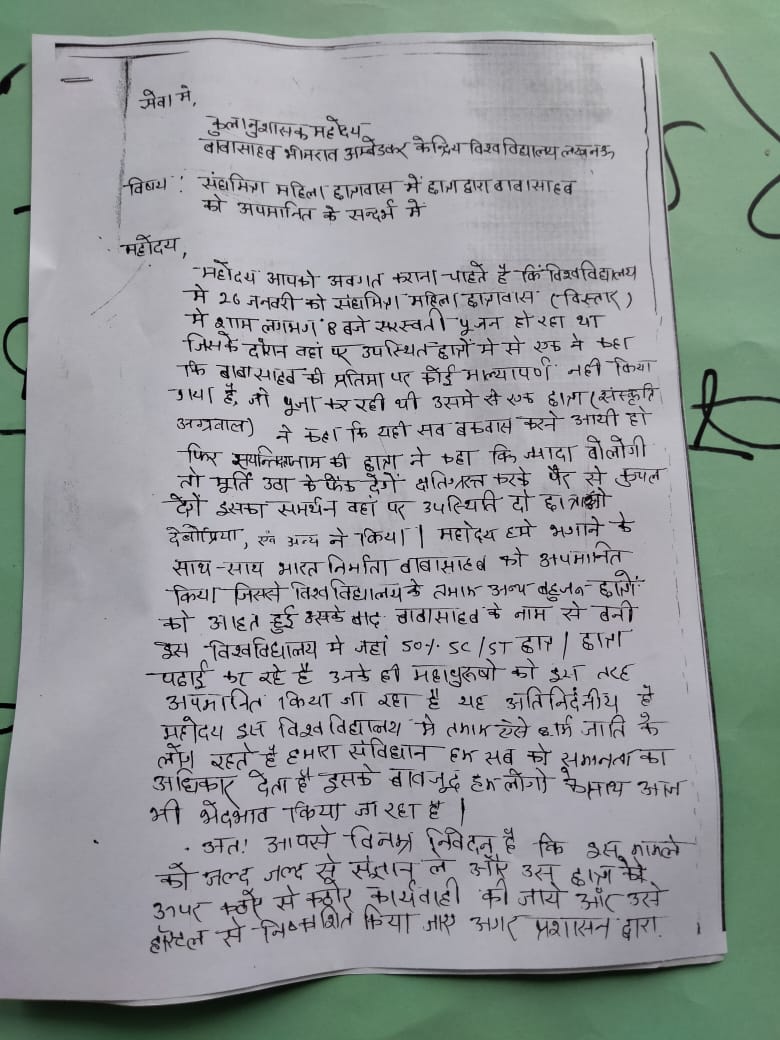 सेवा मे,
कुलानुशासक महोदय
बाबासाहब भीमराव अम्बेडकर केन्द्रिय विश्वविद्यालय लखनऊ
विषय : संघमित्रा महिला छात्रावास में छात्रा द्वारा बाबासाहब
को अपमानित के सन्दर्भ में
महोदय,
महोदय आपको अवगत कराना चाहते है कि विश्वविद्यालय
मे 26 जनवरी को संघमित्रा महिला छात्रावास (विस्तार)
मे शाम लगभग 8 बजे सरस्वती पूजन हो रहा था
जिसके दौरान वहां पर उपस्थित छात्रों मे से एक ने कहा
कि बाबासाहब की प्रतिमा पर कोई माल्यापर्ण नही किया
गया है, जो पूजा कर रही थी उसमे से एक छात्रा (संस्कृति
अग्रवाल) ने कहा कि यही सब बकवास करने आयी हो
फिर नाम की छात्रा ने कहा कि ज्यादा बोलोगी
तो मूर्ति उठा के फेंक देंगे क्षतिग्रस्त करके पैर से कुचल
देंगे इसका समर्थन वहां पर उपस्थिति दो छात्राओ
देबोप्रिया, एवं अन्य ने किया | महोदय हमे भगाने के
साथ-साथ भारत निर्माता बाबासाहब को अपमानित
किया जिससे विश्वविद्यालय के तमाम अन्य बहुजन छात्रों
को आहत हुई उसके बाद बाबासाहब के नाम से बनी
इस विश्वविद्यालय मे जहां 50% SC/ST छात्र / छात्रा
पढाई कर रहे है उनके ही महापुरूषो को इस तरह
अपमानित किया जा रहा है यह अतिनिदंनीय है
महोदय इस विश्वविद्यालय मे तमाम ऐसे धर्म जाति के
लोग रहते है हमारा संविधान हम सब को समानता का
अधिकार देता है इसके बावजूद हम लोगो के साथ आज
भी भेदभाव किया जा रहा है |
अतः आपसे विनम्र निवेदन है कि इस मामले
को जल्द जल्द से संज्ञान ले और उस छात्रा के
ऊपर कठोर से कठोर कार्यवाही की जाये और उसे
हॉस्टल से निष्काशित किया जाए अगर प्रशासन द्वारा